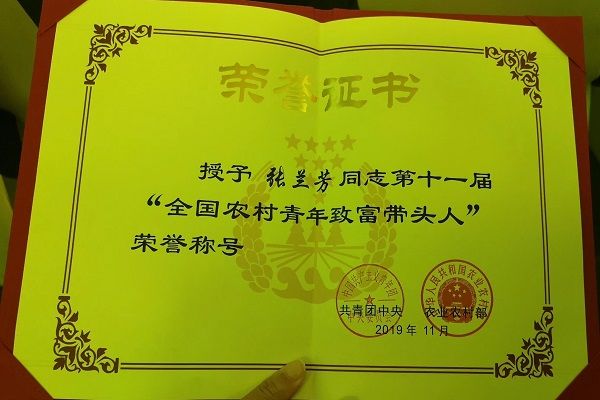 荣誉证书
授予 张兰芳 同志第十一届
“全国农村青年致富带头人”
荣誉称号
共青团中央 农业农村部
2019年 11月